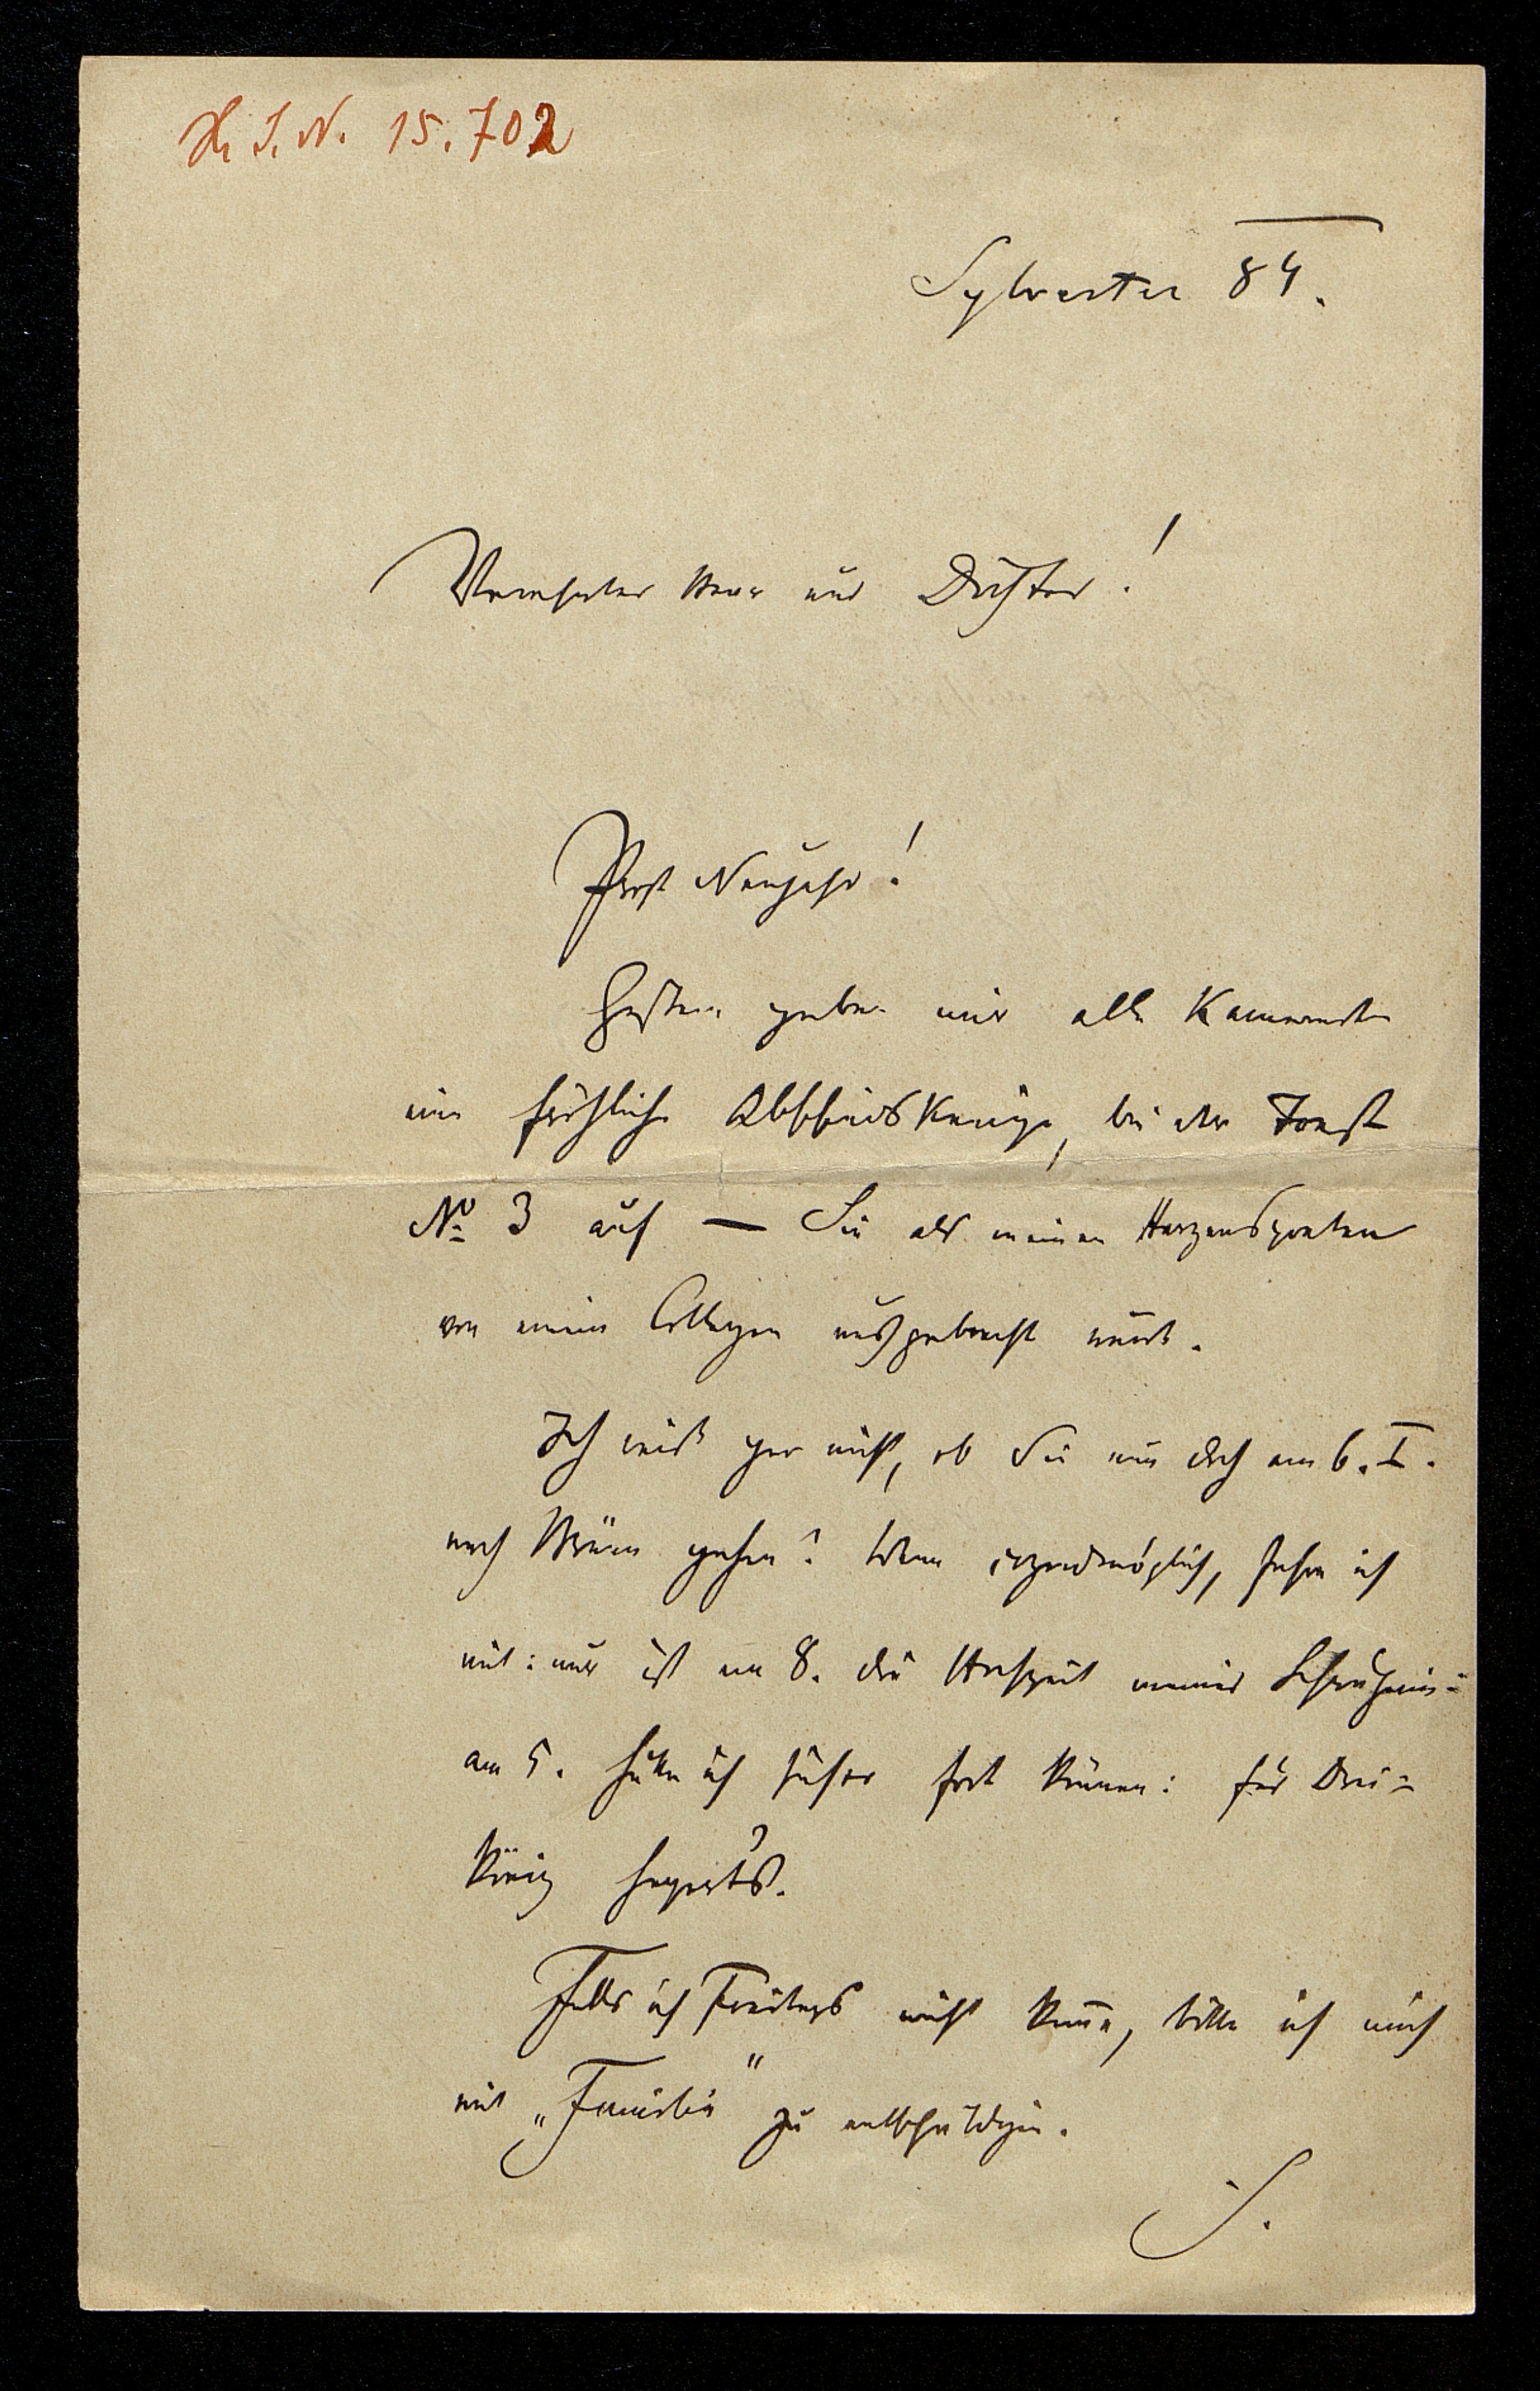 H. I. N. 15.702
Sylvester 84.
Verehrter Herr und Dichter!
Prost Neujahr!
Gestern gaben mir alle Kameraden
eine fröhliche Abschiedskneipe, bei der Toast
No 3 auf — Sie als meinen Herzenspoeten
von einem Collegen ausgebracht wurde.
Ich weiß gar nicht, ob Sie nun doch am 6. I.
nach Brünn gehen? Wenn irgendmöglich, fahre ich
mit: nur ist am 8. die Hochzeit meines
am 5. hätte ich sicher fort können: für Drei-
könig
Falls ich Freitags nicht komme, bitte ich mich
mit „Familie“ zu entschuldigen.
S.